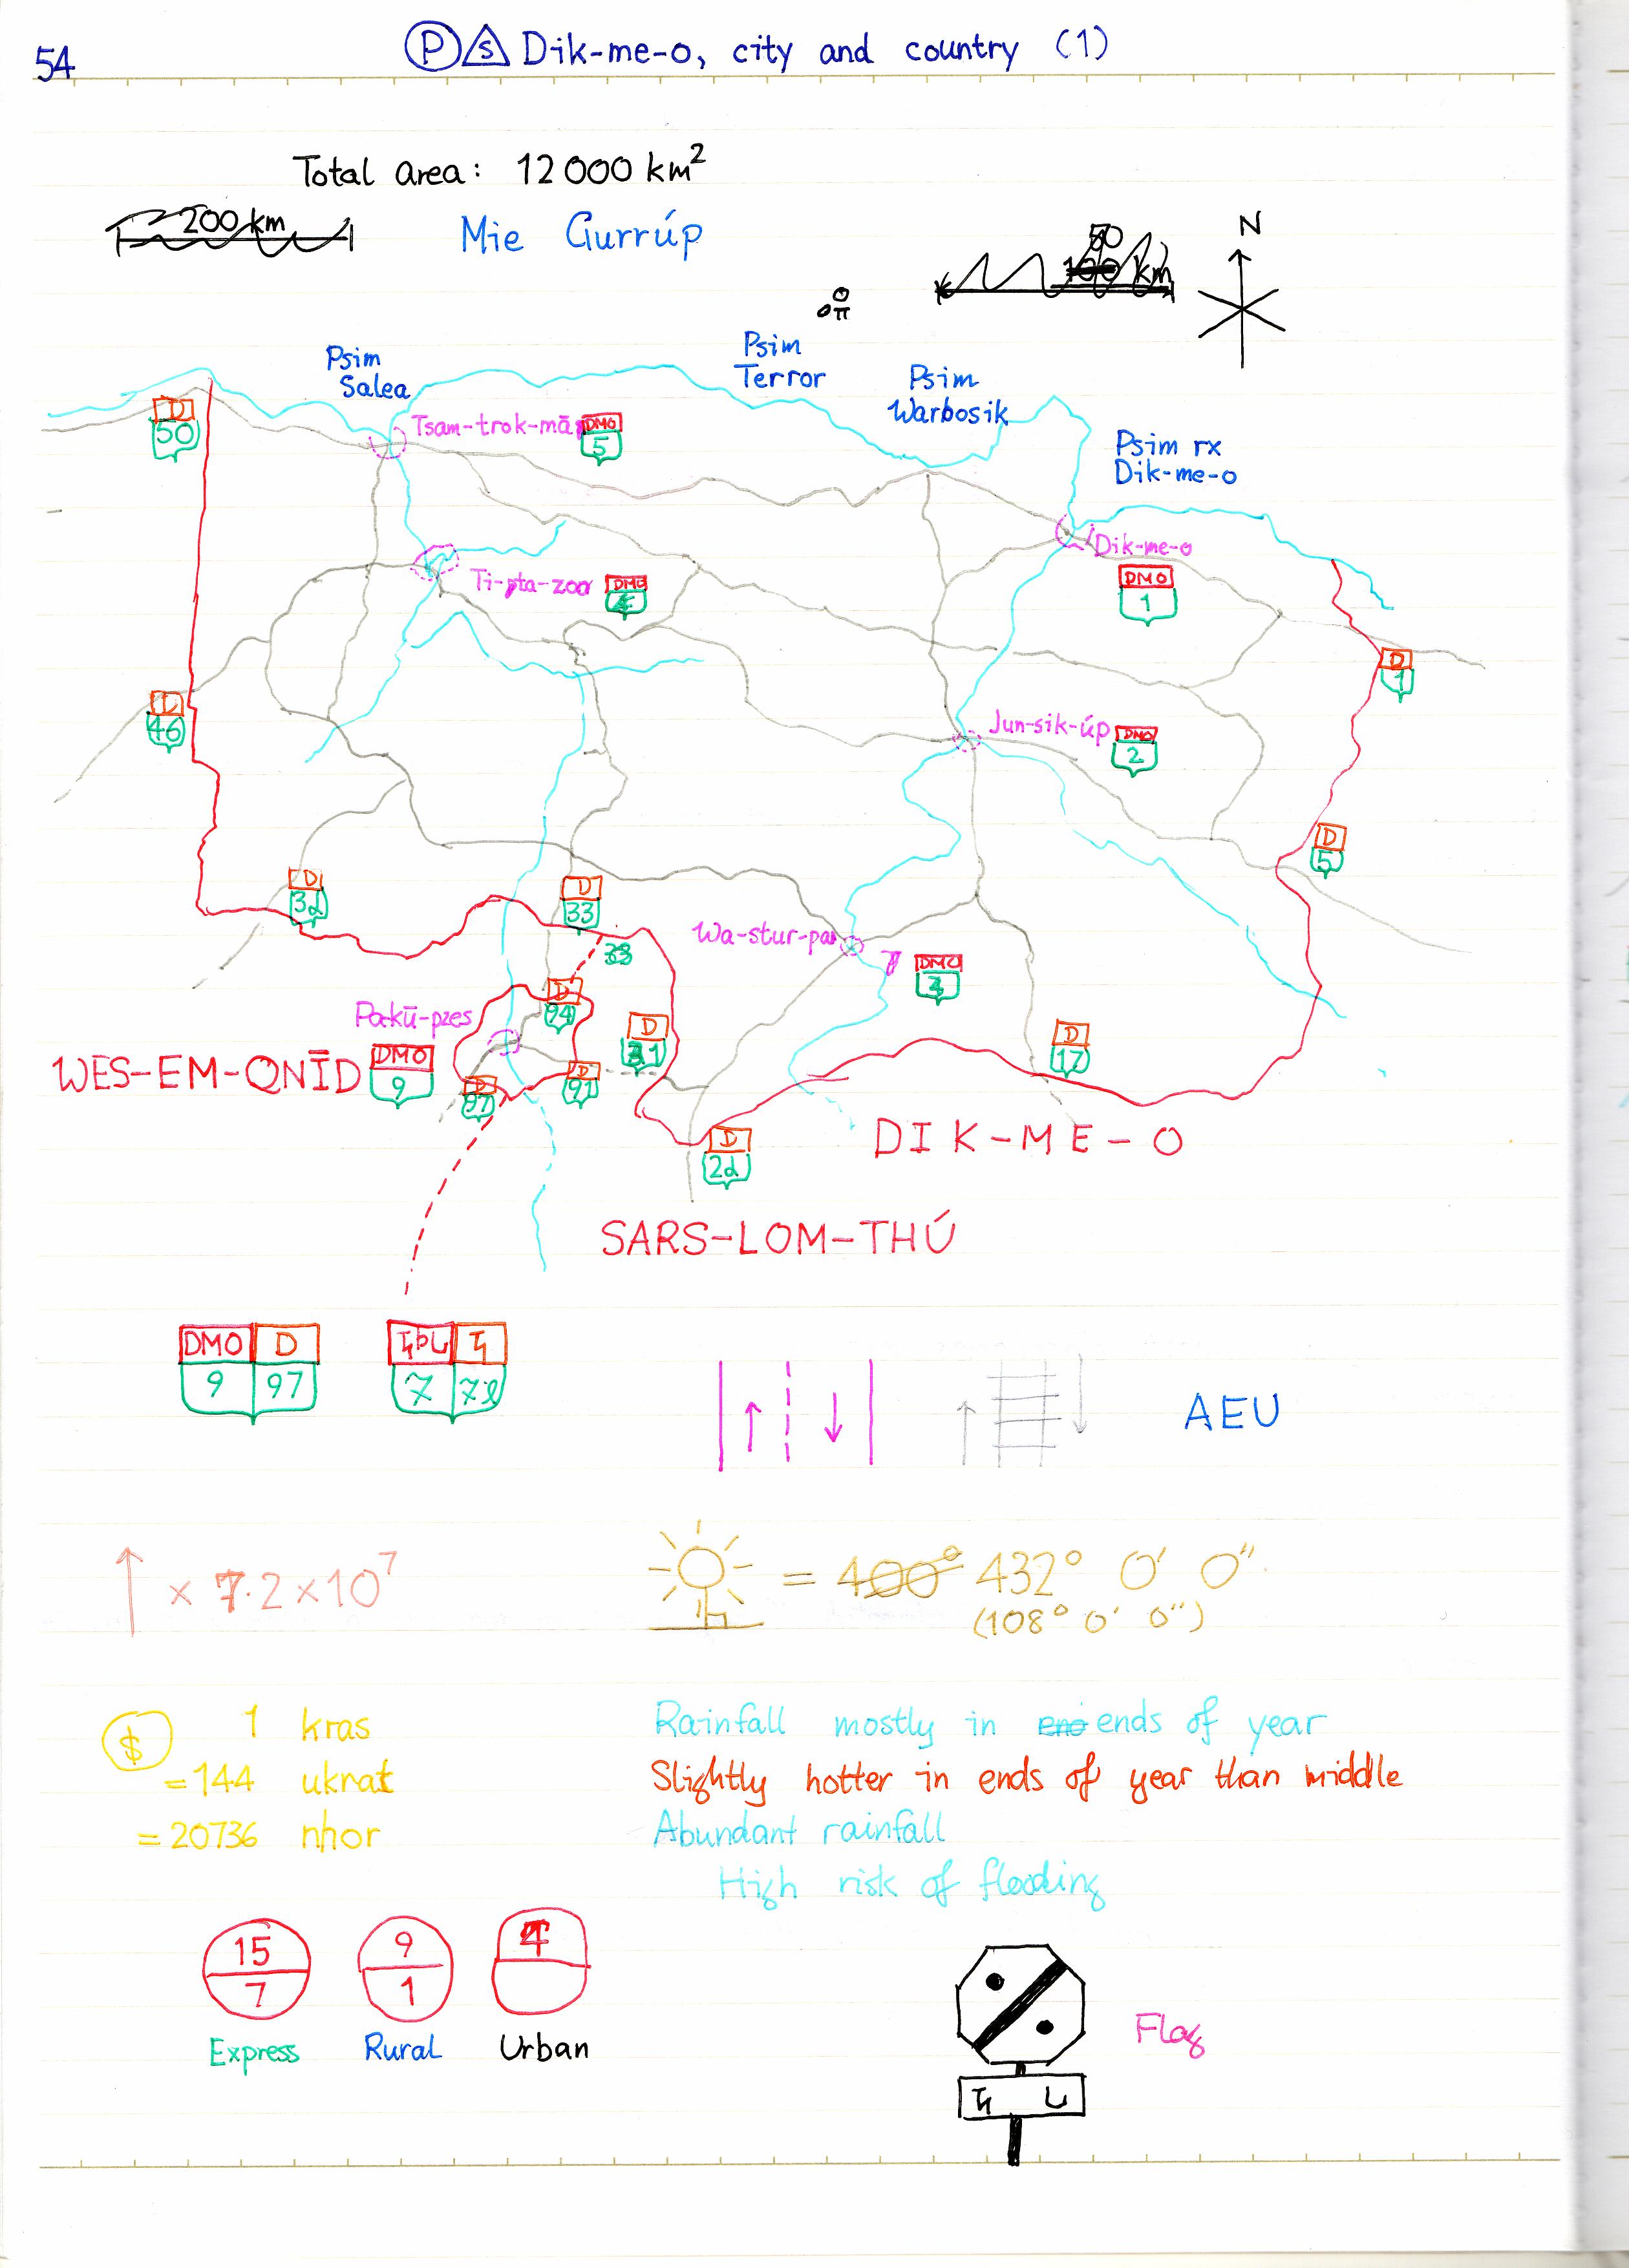 54
P S Dik-me-o, city and country (1)
Total area: 12 000 km²
200 km
Mie Gurrúp
50
100 km
N
Psim
Salea
Psim
Terror
Psim
Warbosik
Psim rx
Dik-me-o
D
50
Tsam-trok-mā
DMO
5
Dik-me-o
DMO
1
Ti-pta-zoo
DMO
D
1
D
46
Jun-sik-úp
DMO
2
D
5
D
3d
D
33
33
Wa-stur-pa
DMO
D
94
Pakū-pzes
D
31
D
17
WES-EM-QNĪD
DMO
9
D
97
D
91
D
2d
DIK-ME-O
SARS-LOM-THÚ
DMO D
9 97
AEU
↑ × 7.2 × 10⁷
= 400° 432° 0′ 0″
(108° 0′ 0″)
$ 1 kras
= 144 ukrat
= 20736 nhor
Rainfall mostly in eno ends of year
Slightly hotter in ends of year than middle
Abundant rainfall
High risk of flooding
15
7
Express
9
1
Rural
4
Urban
Flag